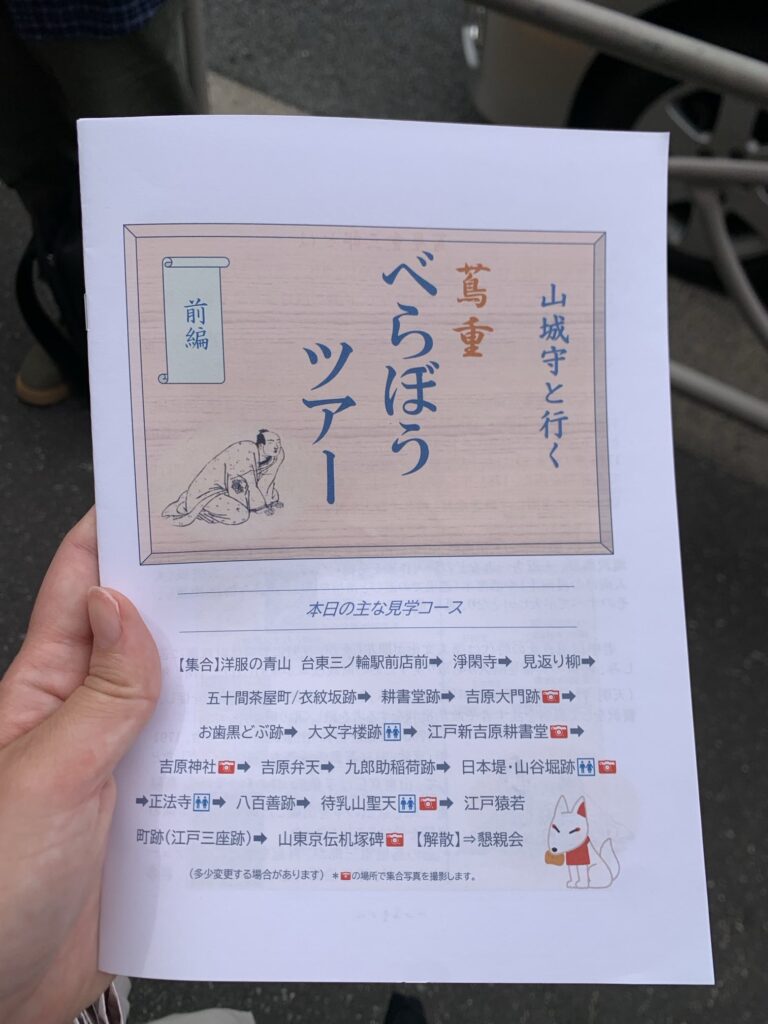 山城守と行く
蔦重
べらぼう
ツアー
前編
本日の主な見学コース
【集合】洋服の青山 台東三ノ輪駅前店前➡ 淨閑寺➡ 見返り柳➡
五十間茶屋町/衣紋坂跡➡ 耕書堂跡➡ 吉原大門跡➡
お歯黒どぶ跡➡ 大文字楼跡➡ 江戸新吉原耕書堂➡
吉原神社➡ 吉原弁天➡ 九郎助稲荷跡➡ 日本堤・山谷堀跡
➡正法寺➡ 八百善跡➡ 待乳山聖天➡ 江戸猿若
町跡(江戸三座跡)➡ 山東京伝机塚碑 【解散】⇒懇親会
(多少変更する場合があります) *の場所で集合写真を撮影します。